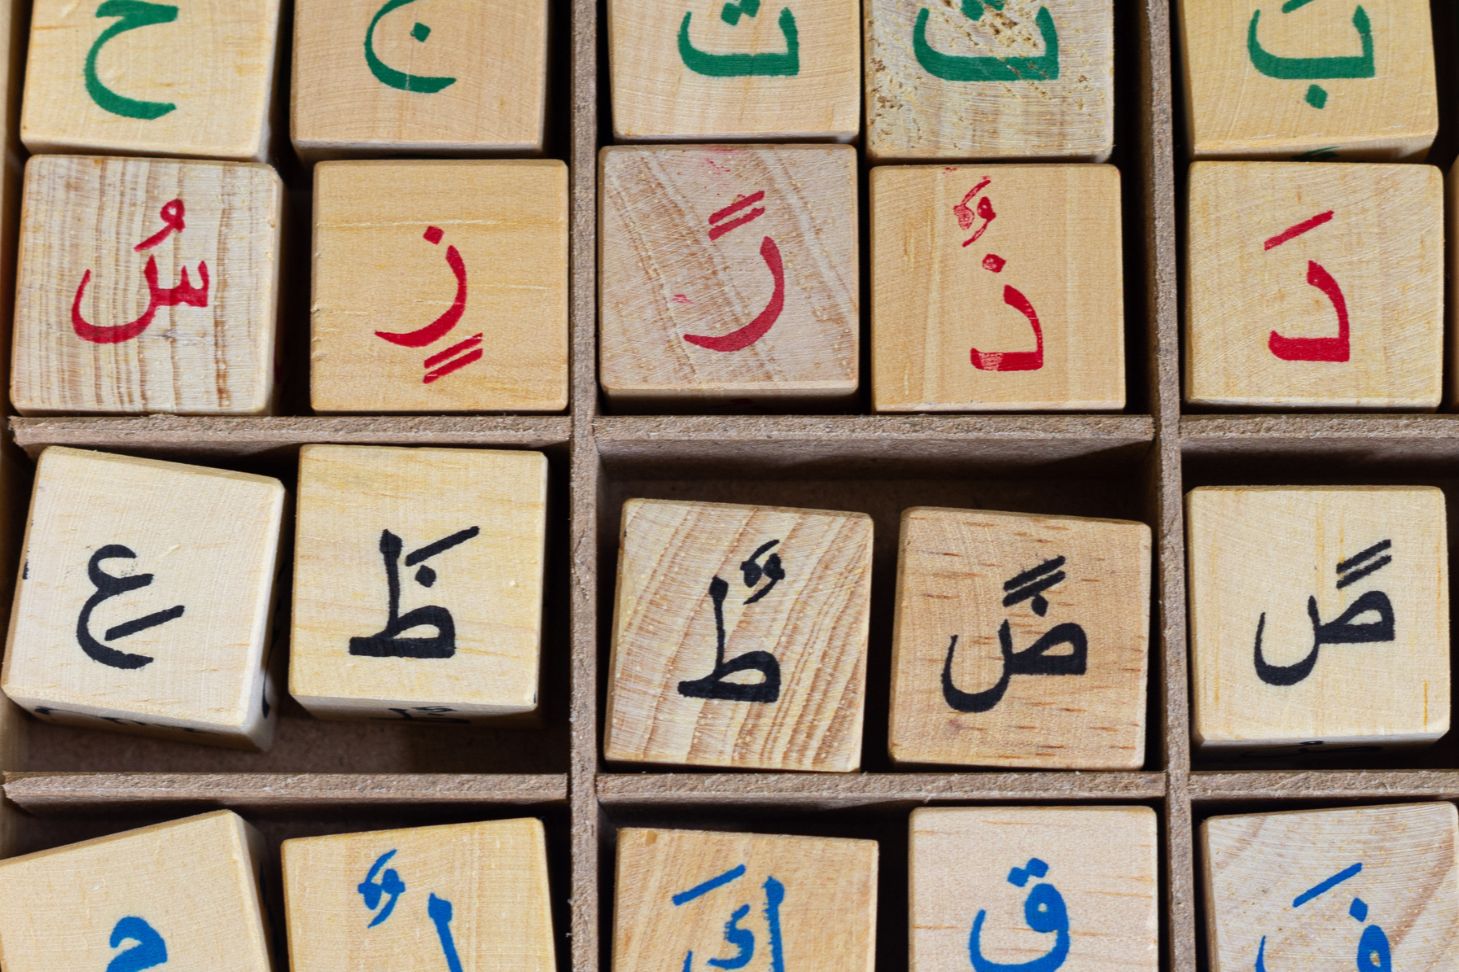 بَ ت ث ج ح
دَ ذٌ رً زٍ سُ
صً ضً طٌ ظَ عِ
فَ ق كَ لٌ م